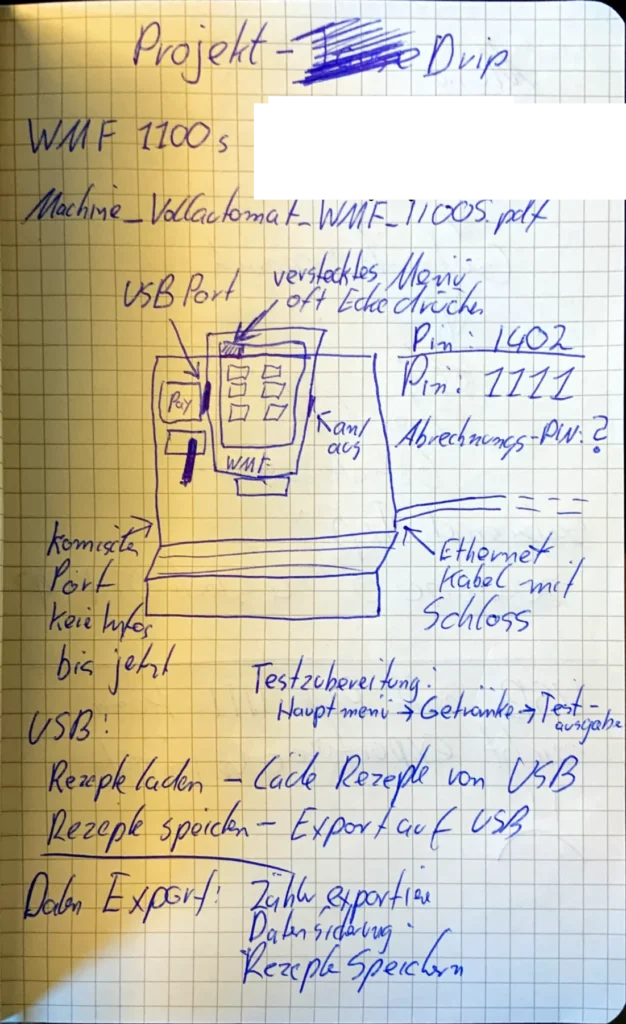 Projekt - Drip
WMF 1100s
Machine_Vollautomat_WMF_1100S.pdf
USB Port
verstecktes Menü
oft Ecke drücken
Pin: 1402
Pin: 1111
Abrechnungs-PIN: ?
Pay
WMF
an/
aus
komischer
Port
keie Infos
bis jetzt
Ethernet
Kabel mit
Schloss
Testzubereitung:
Hauptmenü → Getränke → Test-
ausgabe
USB:
Rezepte laden - Lade Rezepte von USB
Rezepte speichern - Export auf USB
Daten Export: Zähler exportieren
Datensicherung
Rezepte Speichern